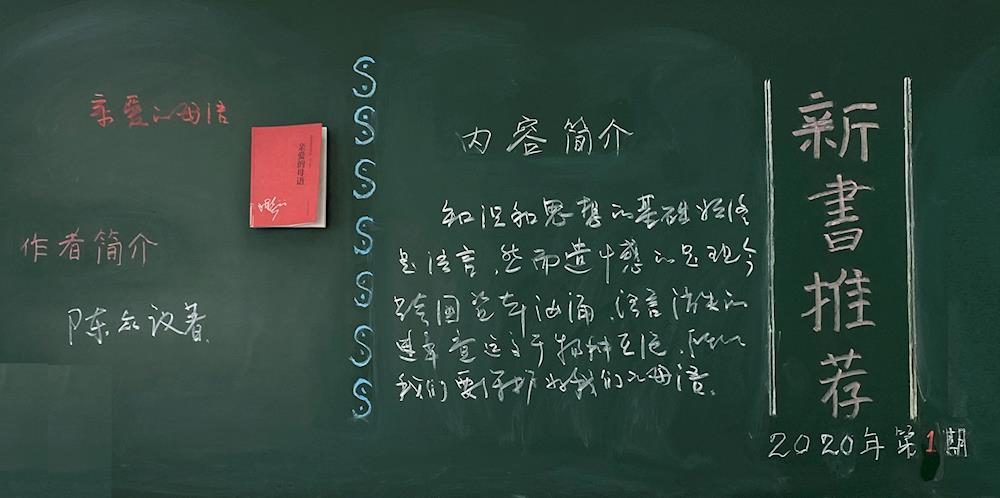 新書推荐
2020年第1期
内容简介
知识和思想的基础始终
是语言，然而遗憾的是现今
跨国资本汹涌，语言消失的
速率查远高于物种灭绝，所以
我们要保护好我们的母语。
亲爱的母语
亲爱的母语
作者简介
陈众议著